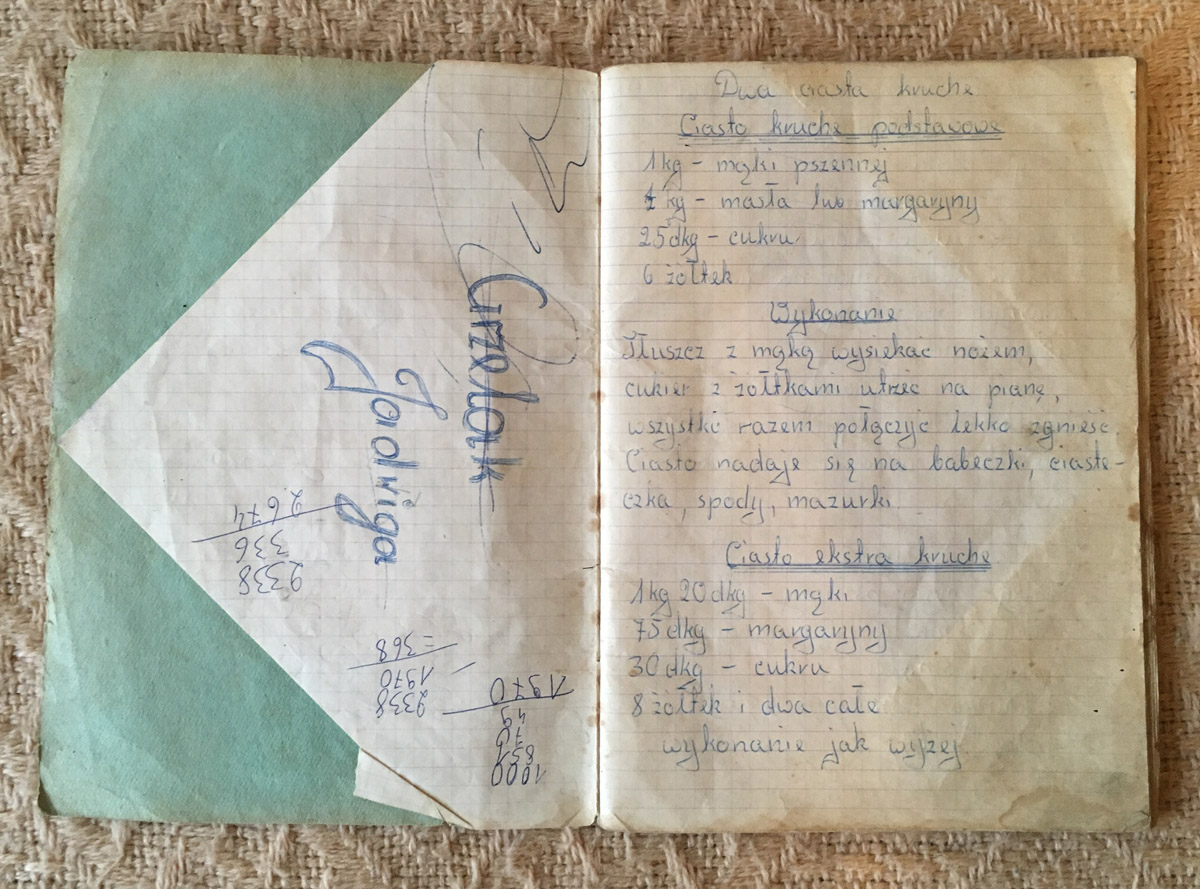 Grzelak
Jadwiga
2338
336
2674
2338
1970
=368
1000
851
70
49
1970
Dwa ciasta kruche
Ciasto kruche podstawowe
1kg - mąki pszennej
1 kg - masła lub margaryny
25dkg - cukru
6 żółtek
Wykonanie
Tłuszcz z mąką wysiekać nożem,
cukier z żółtkami utrzeć na pianę,
wszystko razem połączyć lekko zgnieść
Ciasto nadaje się na babeczki, ciaste-
czka, spody, mazurki
Ciasto ekstra kruche
1kg 20dkg - mąki
75dkg - margaryny
30dkg - cukru
8 żółtek i dwa całe
wykonanie jak wyżej